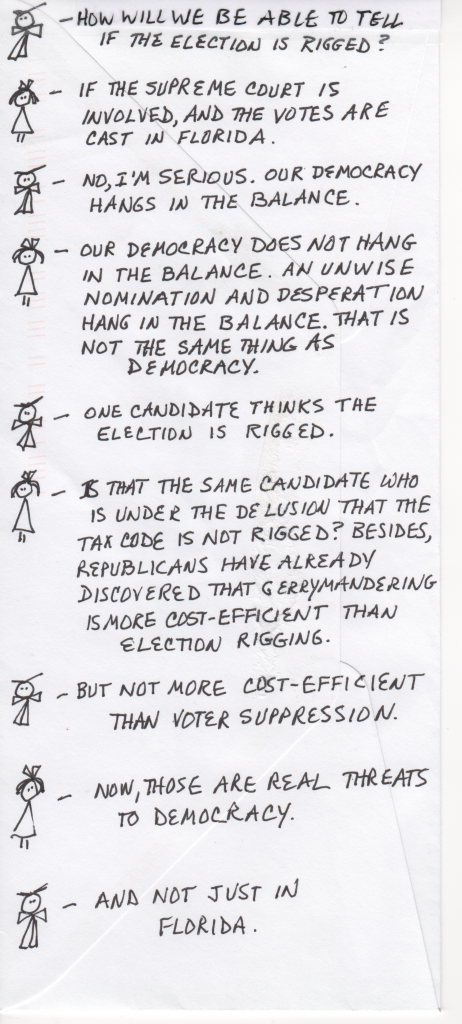 -HOW WILL WE BE ABLE TO TELL
IF THE ELECTION IS RIGGED?
- IF THE SUPREME COURT IS
INVOLVED, AND THE VOTES ARE
CAST IN FLORIDA.
- NO, I'M SERIOUS. OUR DEMOCRACY
HANGS IN THE BALANCE.
- OUR DEMOCRACY DOES NOT HANG
IN THE BALANCE. AN UNWISE
NOMINATION AND DESPERATION
HANG IN THE BALANCE. THAT IS
NOT THE SAME THING AS
DEMOCRACY.
- ONE CANDIDATE THINKS THE
ELECTION IS RIGGED.
- IS THAT THE SAME CANDIDATE WHO
IS UNDER THE DELUSION THAT THE
TAX CODE IS NOT RIGGED? BESIDES,
REPUBLICANS HAVE ALREADY
DISCOVERED THAT GERRYMANDERING
IS MORE COST-EFFICIENT THAN
ELECTION RIGGING.
- BUT NOT MORE COST-EFFICIENT
THAN VOTER SUPPRESSION.
- NOW, THOSE ARE REAL THREATS
TO DEMOCRACY.
- AND NOT JUST IN
FLORIDA.